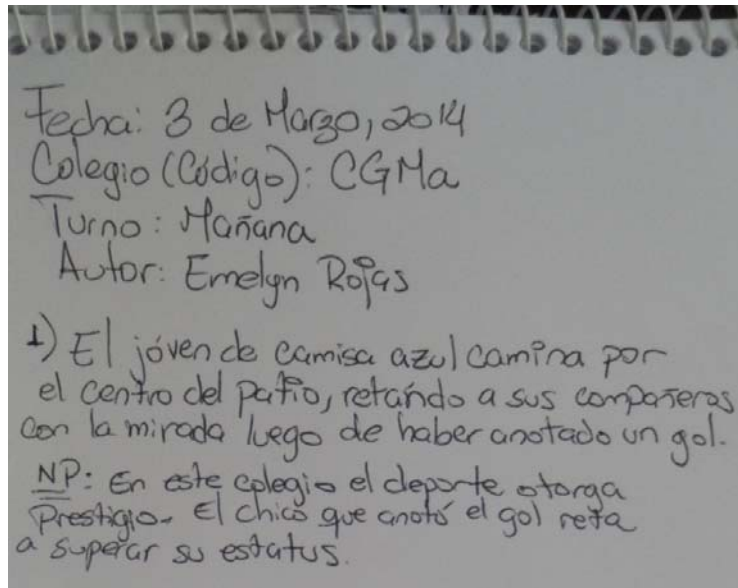 Fecha: 3 de Marzo, 2014
Colegio (Código): CGMa
Turno: Mañana
Autor: Emelyn Rojas
1) El jóven de camisa azul camina por
el centro del patio, retando a sus compañeros
con la mirada luego de haber anotado un gol.
NP: En este colegio el deporte otorga
Prestigio. El chico que anotó el gol reta
a superar su estatus.